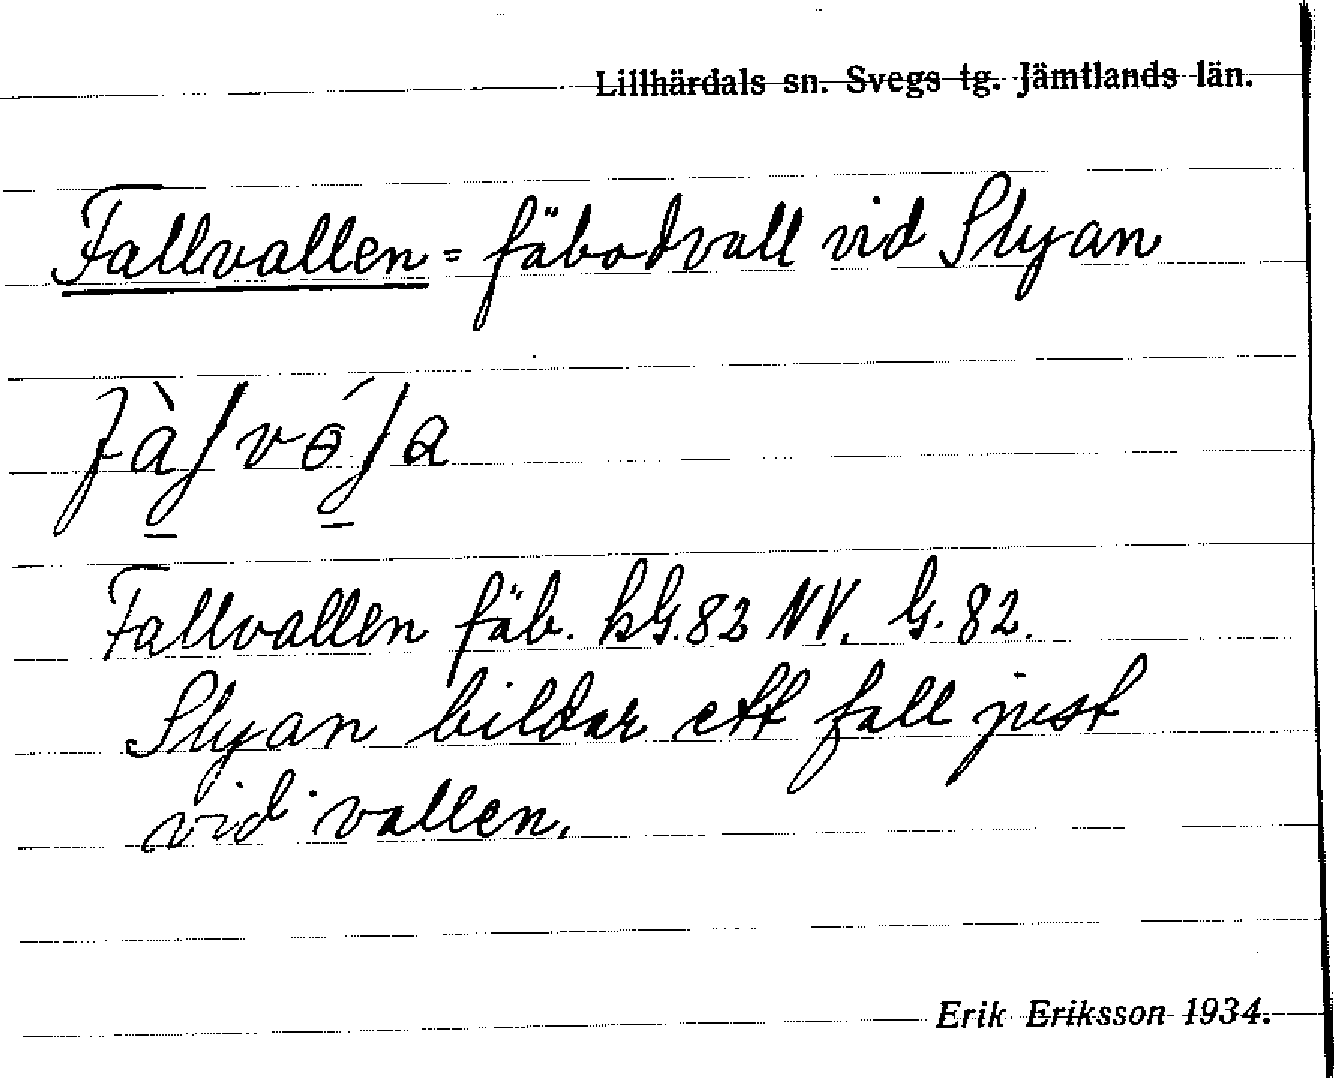 Lillhärdals sn. Svegs tg. Jämtlands län.
Fallvallen = fäbodvall vid Slyan
Fallvallen fäb. hG. 82 NV. G. 82.
Slyan bildar ett fall just
vid vallen.
Erik Eriksson 1934.